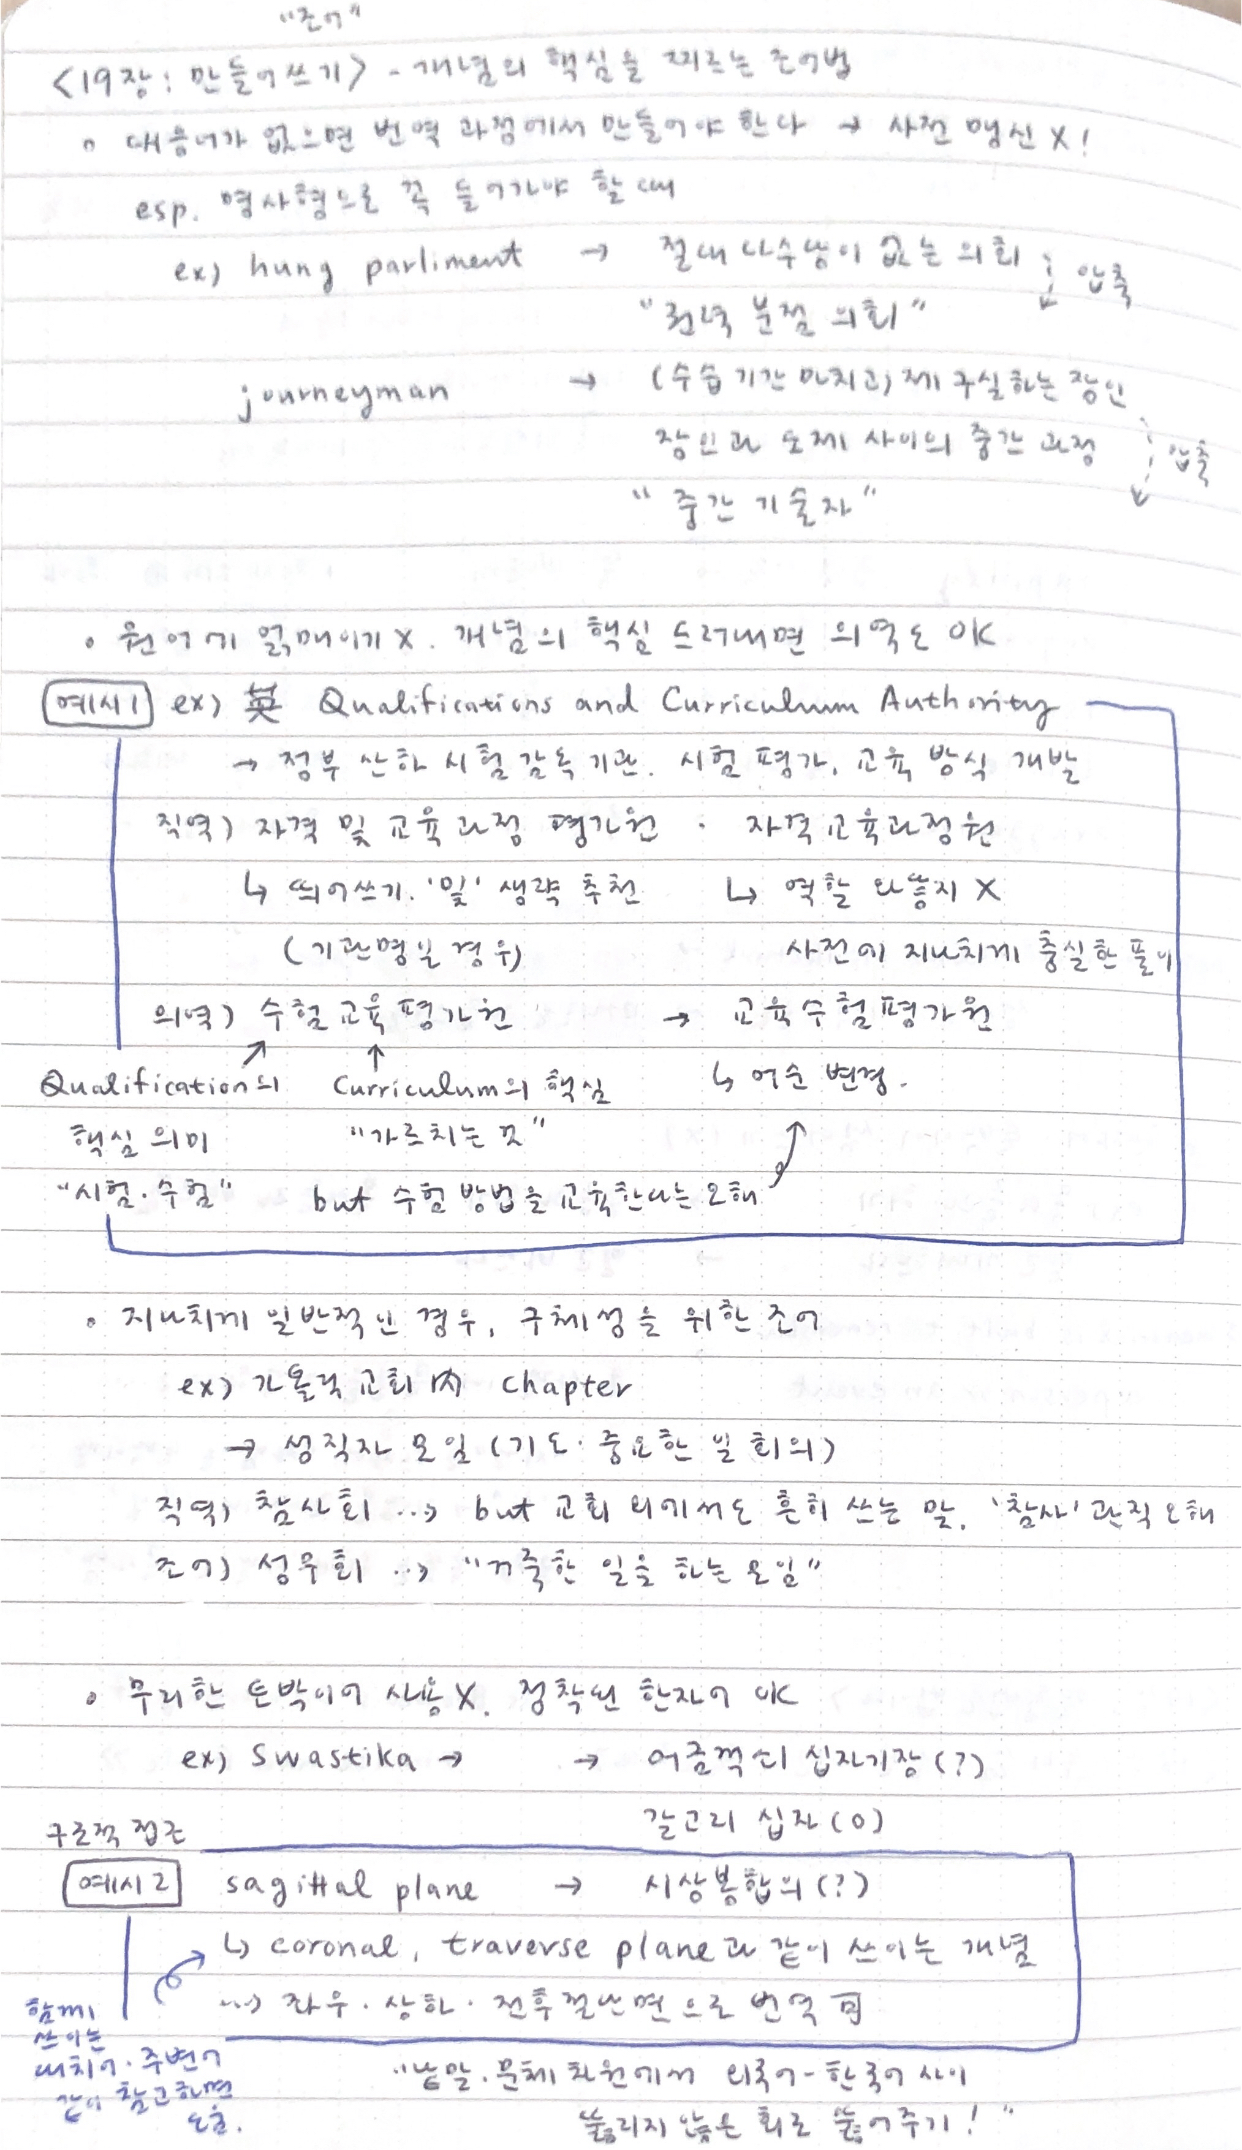 "조어"
<19장: 만들어쓰기> - 개념의 핵심을 찌르는 조어법
대응어가 없으면 번역 과정에서 만들어야 한다 → 사전 맹신 X!
esp. 명사형으로 꼭 들어가야 할 때
ex) hung parliment → 절대 다수당이 없는 의회
압축
"권력 분점 의회"
journeyman → (수습 기간 마치고) 제 구실하는 장인
장인과 도제 사이의 중간 과정
압축
"중간 기술자"
원어에 얽매이기 X. 개념의 핵심 드러내면 의역도 OK
예시1 ex) 英 Qualifications and Curriculum Authority
→ 정부 산하 시험 감독기관. 시험 평가, 교육 방식 개발
직역) 자격 및 교육과정 평가원 · 자격교육과정원
↳ 띄어쓰기. '및' 생략 추천 ↳ 역할 와닿지 X
(기관명일 경우) 사전에 지나치게 충실한 풀이
의역) 수험교육평가원 → 교육수험평가원
Qualification의 Curriculum의 핵심 ↳ 어순 변경.
핵심 의미 "가르치는 것"
"시험·수험" but 수험 방법을 교육한다는 오해
지나치게 일반적인 경우, 구체성을 위한 조어
ex) 가톨릭 교회 內 chapter
→ 성직자 모임 (기도·중요한 일 회의)
직역) 참사회 …> but 교회 외에서도 흔히 쓰는 말, '참사' 관직 오해
조어) 성무회 …> "거룩한 일을 하는 모임"
무리한 토박이어 사용 X. 정착된 한자어 OK
ex) Swastika → → 어금꺽쇠 십자기장 (?)
갈고리 십자 (O)
구조적 접근
예시2 sagittal plane → 시상봉합의 (?)
↳ coronal, traverse plane과 같이 쓰이는 개념
…> 좌우·상하·전후절단면으로 번역 可
함께
쓰이는
대치어·주변어
같이 참고하면
도움.
"낱말·문체 차원에서 외국어-한국어 사이
뚫리지 않은 회로 뚫어주기!"